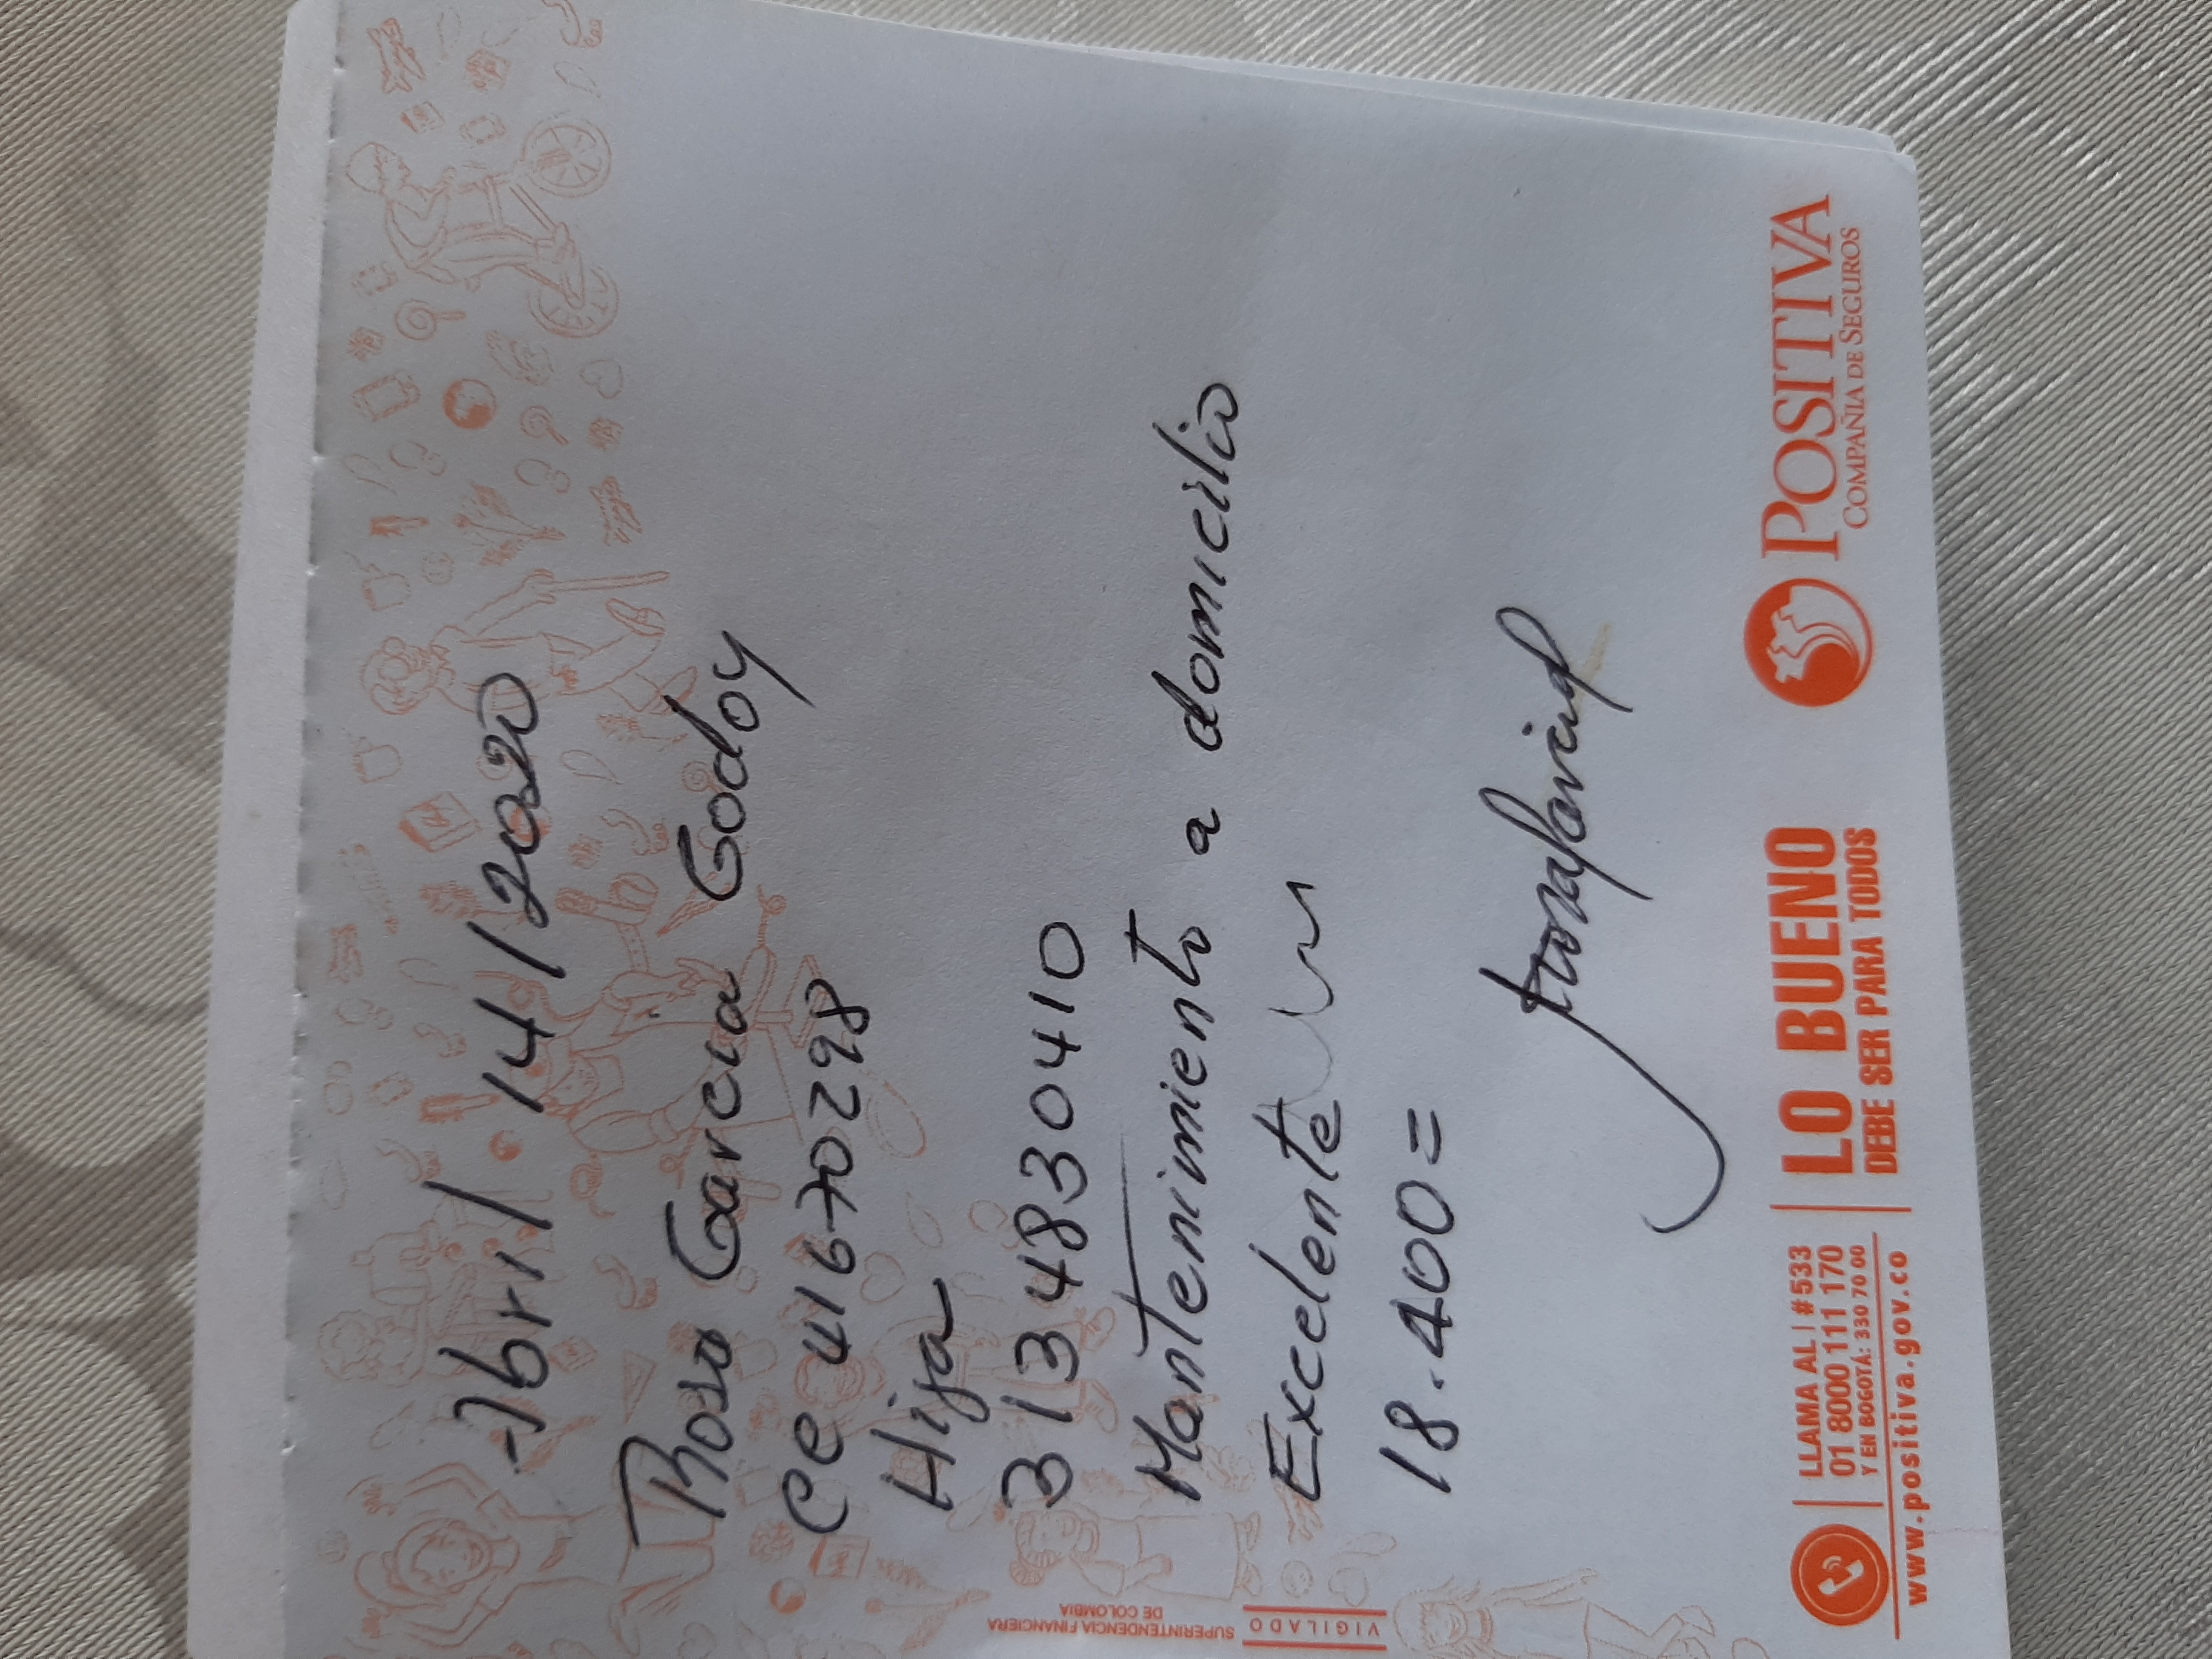 Abril 14/2020
Rosa Garcia Godoy
CC 41670298
Hija
3134830410
Mantenimiento a domicilio
Excelente
18.400=
LLAMA AL | #533
01 8000 111 170
Y EN BOGOTÁ: 330 70 00
www.positiva.gov.co
LO BUENO
DEBE SER PARA TODOS
POSITIVA
COMPAÑIA DE SEGUROS
VIGILADO
SUPERINTENDENCIA FINANCIERA
DE COLOMBIA